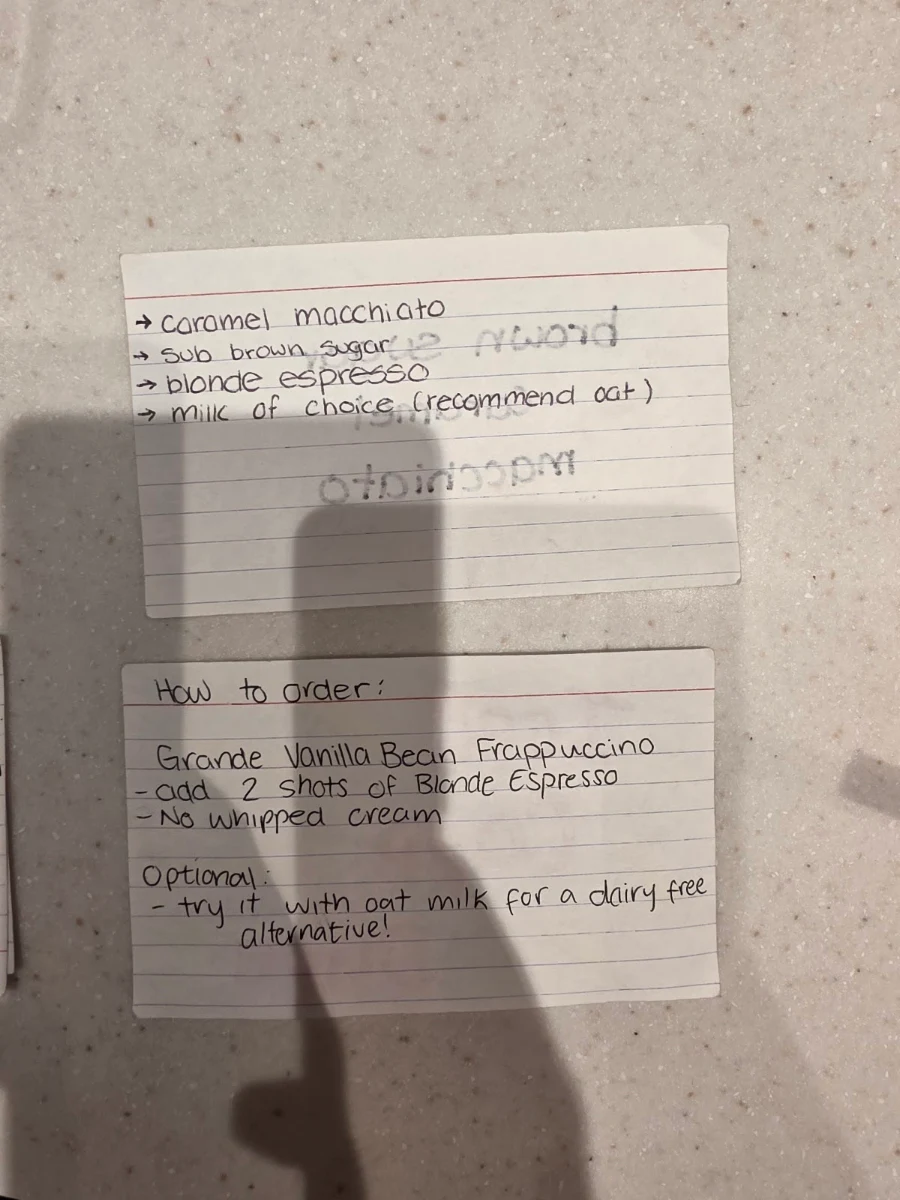 → caramel macchiato
→ sub brown sugar
→ blonde espresso
→ milk of choice (recommend oat)
brown sugar
caramel
macchiato
How to order:
Grande Vanilla Bean Frappuccino
- add 2 shots of Blonde Espresso
- No whipped cream
Optional:
- try it with oat milk for a dairy free
alternative!